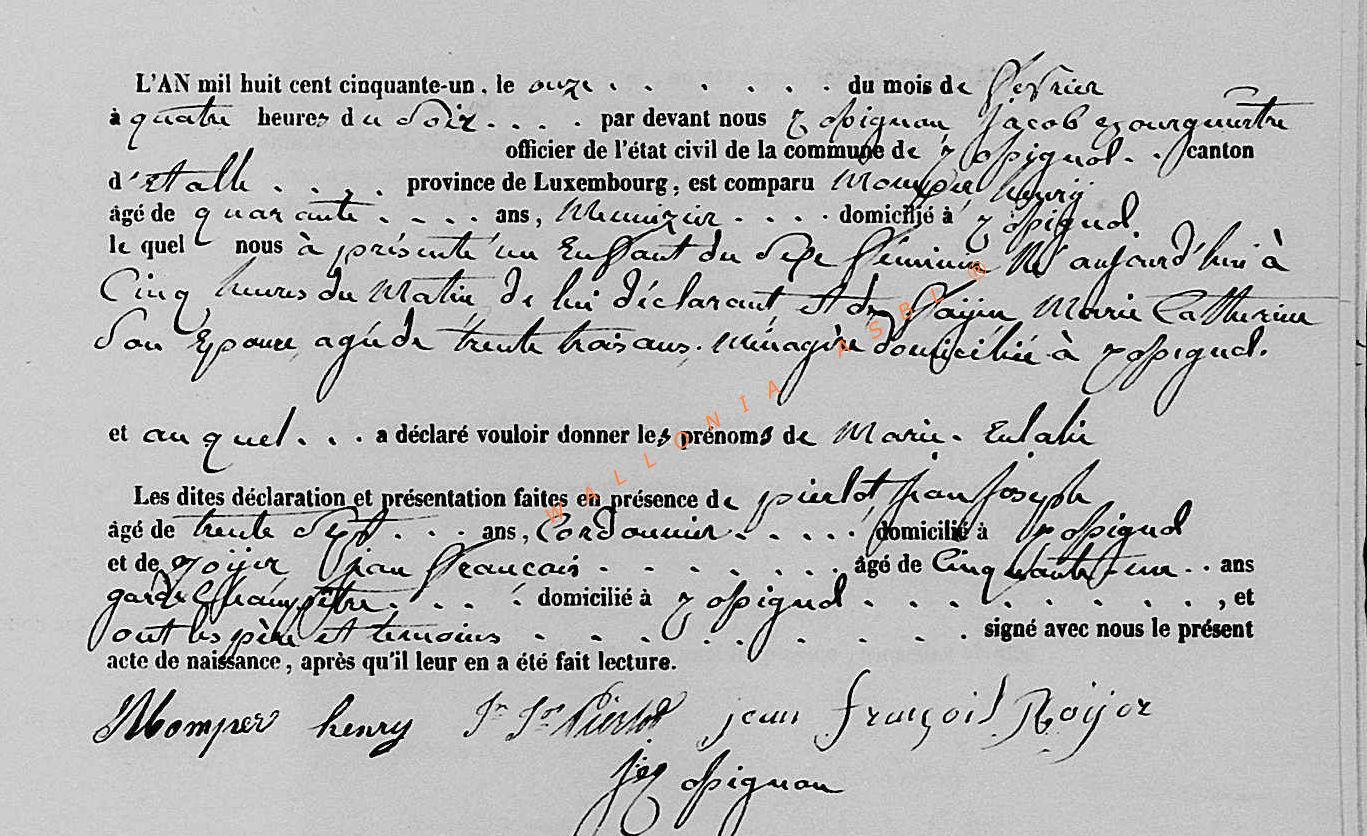 L'AN mil huit cent cinquante-un, le onze . . . . . . . du mois de fevrier
à quatre heures du Soir. . . . par devant nous Rossignon Jacob Bourguemtre
officier de l'état civil de la commune de Rossignol. . canton
d'Etalle . . . . province de Luxembourg, est comparu Momper henry
âgé de quarante . . . . ans, Menuizier . . . . domicilié à Rossignol.
le quel nous à présenté un Enfant du Sexe féminin Né aujourd'hui à
Cinq heures du Matin de lui déclarant et de Marie Catherine
Son Epouse agée de trente trois ans. Ménagère domiciliée à Rossignol.
et auquel. . . a déclaré vouloir donner les prénoms de Marie. Eulalie
Les dites déclaration et présentation faites en présence de pierlot jean joseph
âgé de trente Sept . . . ans, Cordonnier . . . . . domicilié à Rossignol
et de Roijer jean francois . . . . . . . âgé de Cinquante-un . . ans
garde Champêtre . . . . domicilié à Rossignol . . . . . . . . . , et
ont les père et temoins . . . . . . . . . . signé avec nous le présent
acte de naissance, après qu'il leur en a été fait lecture.
Momper henry Jn Jos Pierlot jean françois Roijer
Rossignon
WALLONIA ASBL ®